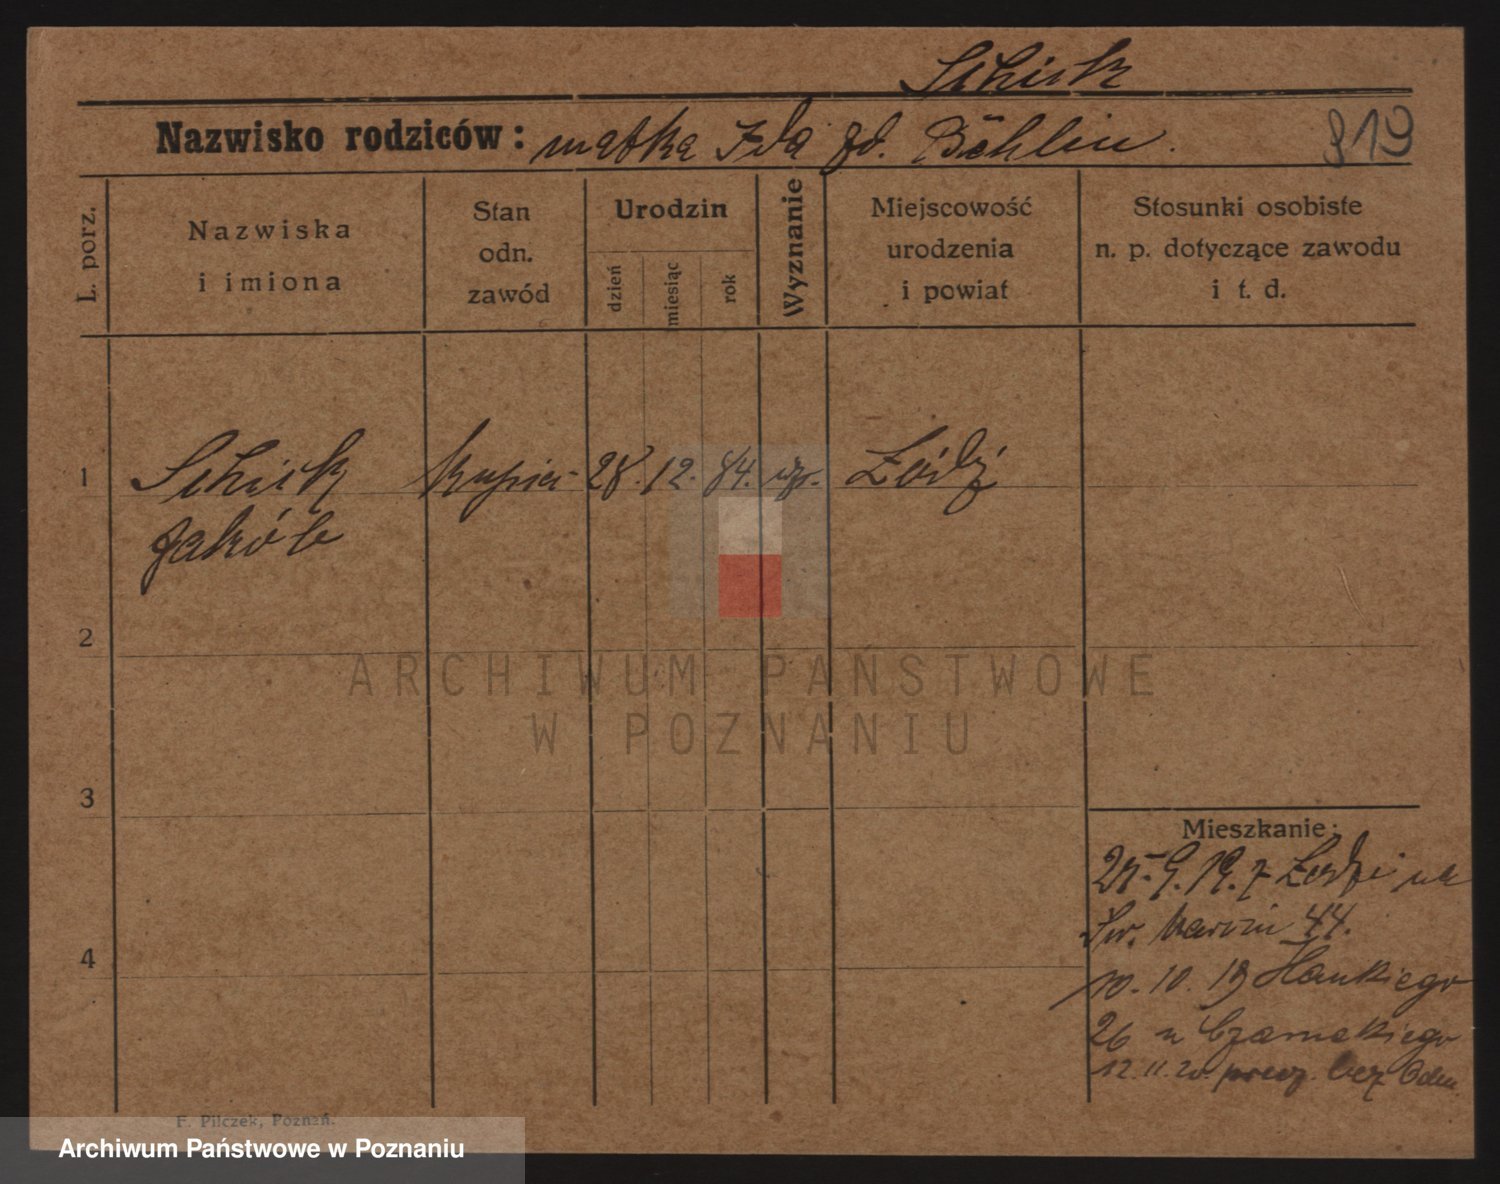 Schick
Nazwisko rodziców: matka Ida zd. Böhlin.
819
L. porz.
Nazwiska
i imiona
Stan
odn.
zawód
Urodzin
dzień
miesiąc
rok
Wyznanie
Miejscowość
urodzenia
i powiat
Stosunki osobiste
n. p. dotyczące zawodu
i t. d.
1
Schick
Jakób
kupiec
28. 12. 84.
Łódź
2
3
4
Mieszkanie:
9. 19. z Łodzi na
Św. Marcin 44.
10. 10. 19
26 u Czarneckiego
12. 11. 20. bez
F. Pilczek, Poznań.
ARCHIWUM PAŃSTWOWE
W POZNANIU
Archiwum Państwowe w Poznaniu